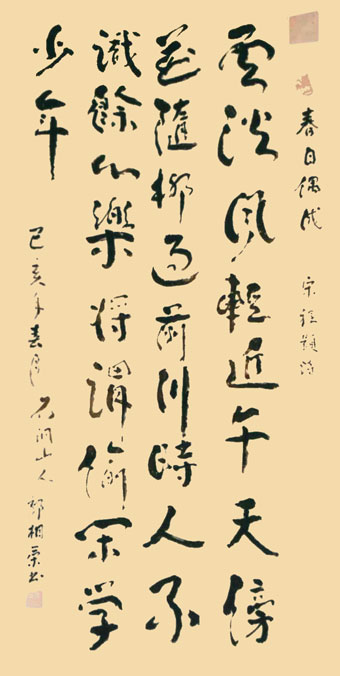 春日偶成 宋程顥詩
雲淡風輕近午天傍
花隨柳過前川時人不
識餘心樂將謂偷閑学
少年
己亥年春月 山人 相榮书